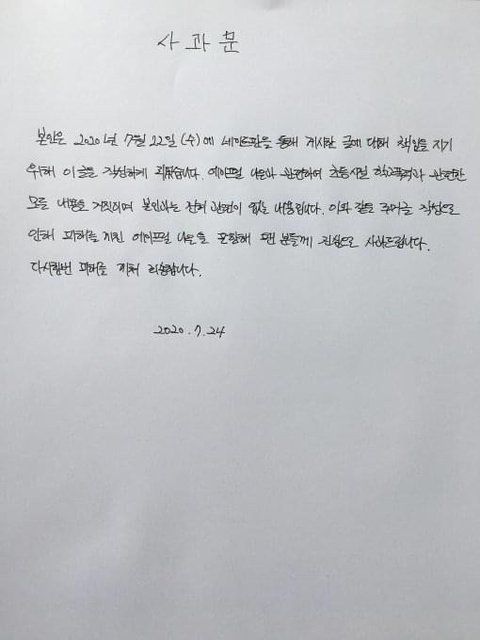 사과문
본인은 2020년 7월 22일 (수)에 네이트판을 통해 게시한 글에 대해 책임을 지기
위해 이 글을 작성하게 되었습니다. 에이프릴 나은과 관련하여 초등시절 학교폭력과 관련한
모든 내용은 거짓이며 본인과는 전혀 관련이 없는 내용입니다. 이와 같은 허위글 작성으로
인해 피해를 끼친 에이프릴 나은을 포함해 팬 분들께 진심으로 사과드립니다.
다시한번 피해를 끼쳐 죄송합니다.
2020. 7. 24